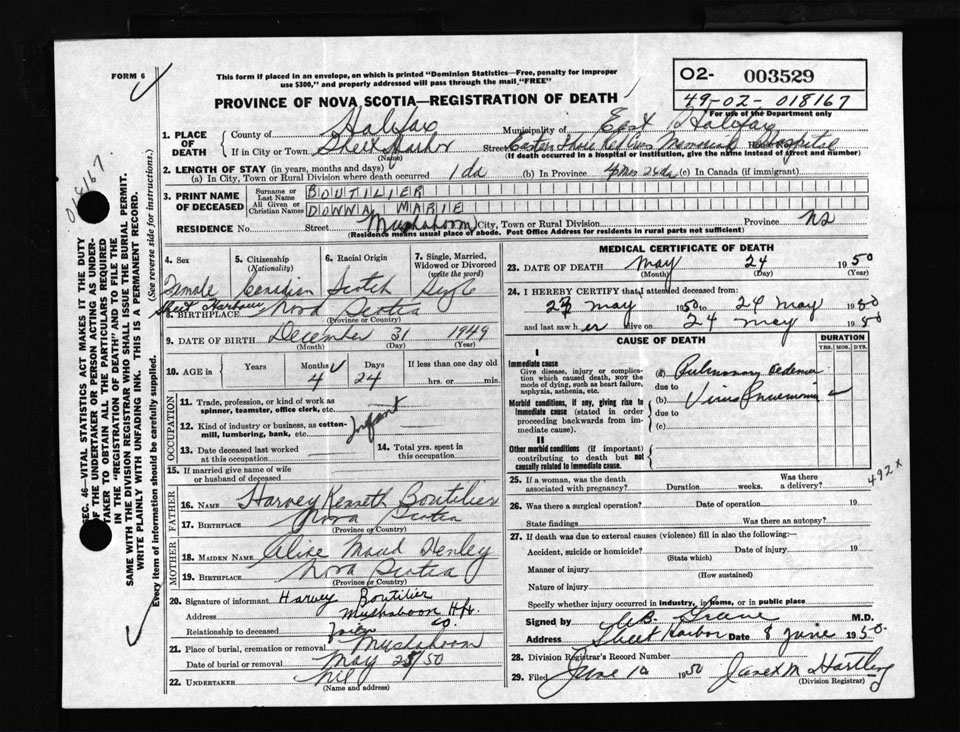 FORM 6
This form if placed in an envelope, on which is printed "Dominion Statistics—Free, penalty for improper
use $300," and properly addressed will pass through the mail "FREE"
O2- 003529
49-02-018167
For use of the Department only
PROVINCE OF NOVA SCOTIA—REGISTRATION OF DEATH
018167
1. PLACE OF DEATH
County of Halifax Municipality of East Halifax
If in City or Town Sheet Harbor Street Eastern Shore Red Cross Memorial Hospital
(Name) (If death occurred in a hospital or institution, give the name instead of street and number)
2. LENGTH OF STAY (in years, months and days)
(a) In City, Town or Rural Division where death occurred 1 da (b) In Province 4 Mos 24 da (c) In Canada (if immigrant)
3. PRINT NAME OF DECEASED
Surname or Last Name BOUTILIER
All Given or Christian Names DONNA MARIE
RESIDENCE No. Street Mushaboom City, Town or Rural Division Province NS
(Residence means usual place of abode. Post Office Address for residents in rural parts not sufficient)
4. Sex Female
5. Citizenship (Nationality) Canadian
6. Racial Origin Scotch
7. Single, Married, Widowed or Divorced (write the word) Single
8. BIRTHPLACE Sheet Harbour Nova Scotia
(Province or Country)
9. DATE OF BIRTH December 31 1949
(Month) (Day) (Year)
10. AGE in Years Months 4 Days 24 If less than one day old
hrs. or min.
OCCUPATION
11. Trade, profession, or kind of work as spinner, teamster, office clerk, etc.
Infant
12. Kind of industry or business, as cotton-mill, lumbering, bank, etc.
13. Date deceased last worked at this occupation
14. Total yrs. spent in this occupation
15. If married give name of wife or husband of deceased
FATHER
16. NAME Harvey Kenneth Boutilier
17. BIRTHPLACE Nova Scotia
MOTHER
18. MAIDEN NAME Alice Maud Henley
19. BIRTHPLACE Nova Scotia
(Province or Country)
20. Signature of informant Harvey Boutilier
Address Mushaboon Hfx. Co.
Relationship to deceased
21. Place of burial, cremation or removal Mushaboom
Date of burial or removal May 25/50
22. UNDERTAKER Nil
(Name and address)
MEDICAL CERTIFICATE OF DEATH
23. DATE OF DEATH May 24 1950
(Month) (Day) (Year)
24. I HEREBY CERTIFY that I attended deceased from:
23 May 1950 to 24 May 1950
and last saw her alive on 24 May 1950
CAUSE OF DEATH
DURATION
YRS. MOS. DYS.
I
Immediate cause
Give disease, injury or complication which caused death, not the mode of dying, such as heart failure, asphyxia, asthenia, etc.
(a) Pulmonary oedema
due to
Morbid conditions, if any, giving rise to immediate cause (stated in order proceeding backwards from immediate cause).
(b) Virus Pneumonia
due to
(c)
II
Other morbid conditions (if important) contributing to death but not causally related to immediate cause.
492x
25. If a woman, was the death associated with pregnancy? Duration weeks. Was there a delivery?
26. Was there a surgical operation? Date of operation 19
State findings Was there an autopsy?
27. If death was due to external causes (violence) fill in also the following:—
Accident, suicide or homicide? Date of injury 19
(State which)
Manner of injury
(How sustained)
Nature of injury
Specify whether injury occurred in industry, in home, or in public place
Signed by M.D.
Address Sheet Harbor Date 8 June 1950.
28. Division Registrar's Record Number
29. Filed June 10 1950 Janet M Hartling
(Division Registrar)
SEC. 46—VITAL STATISTICS ACT MAKES IT THE DUTY
OF THE UNDERTAKER OR PERSON ACTING AS UNDER-
TAKER TO OBTAIN ALL THE PARTICULARS REQUIRED
IN THE "REGISTRATION OF DEATH" AND TO FILE THE
SAME WITH THE DIVISION REGISTRAR WHO SHALL ISSUE THE BURIAL PERMIT.
WRITE PLAINLY WITH UNFADING INK. THIS IS A PERMANENT RECORD.
Every item of information should be carefully supplied. (See reverse side for instructions.)